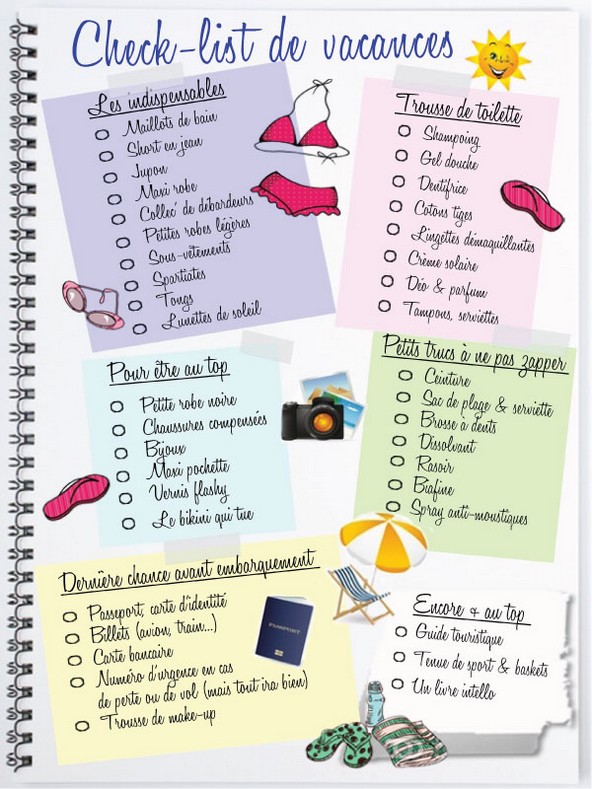 Check-list de vacances
Les indispensables
Maillots de bain
Short en jean
Jupon
Maxi robe
Collec' de débardeurs
Petites robes légères
Sous-vêtements
Spartiates
Tongs
Lunettes de soleil
Trousse de toilette
Shampoing
Gel douche
Dentifrice
Cotons tiges
Lingettes démaquillantes
Crème solaire
Déo & parfum
Tampons, serviettes
Pour être au top
Petite robe noire
Chaussures compensées
Bijoux
Maxi pochette
Vernis flashy
Le bikini qui tue
Petits trucs à ne pas zapper
Ceinture
Sac de plage & serviette
Brosse à dents
Dissolvant
Rasoir
Biafine
Spray anti-moustiques
Dernière chance avant embarquement
Passeport, carte d'identité
Billets (avion, train...)
Carte bancaire
Numéro d'urgence en cas
de perte ou de vol (mais tout ira bien)
Trousse de make-up
PASSPORT
Encore + au top
Guide touristique
Tenue de sport & baskets
Un livre intello